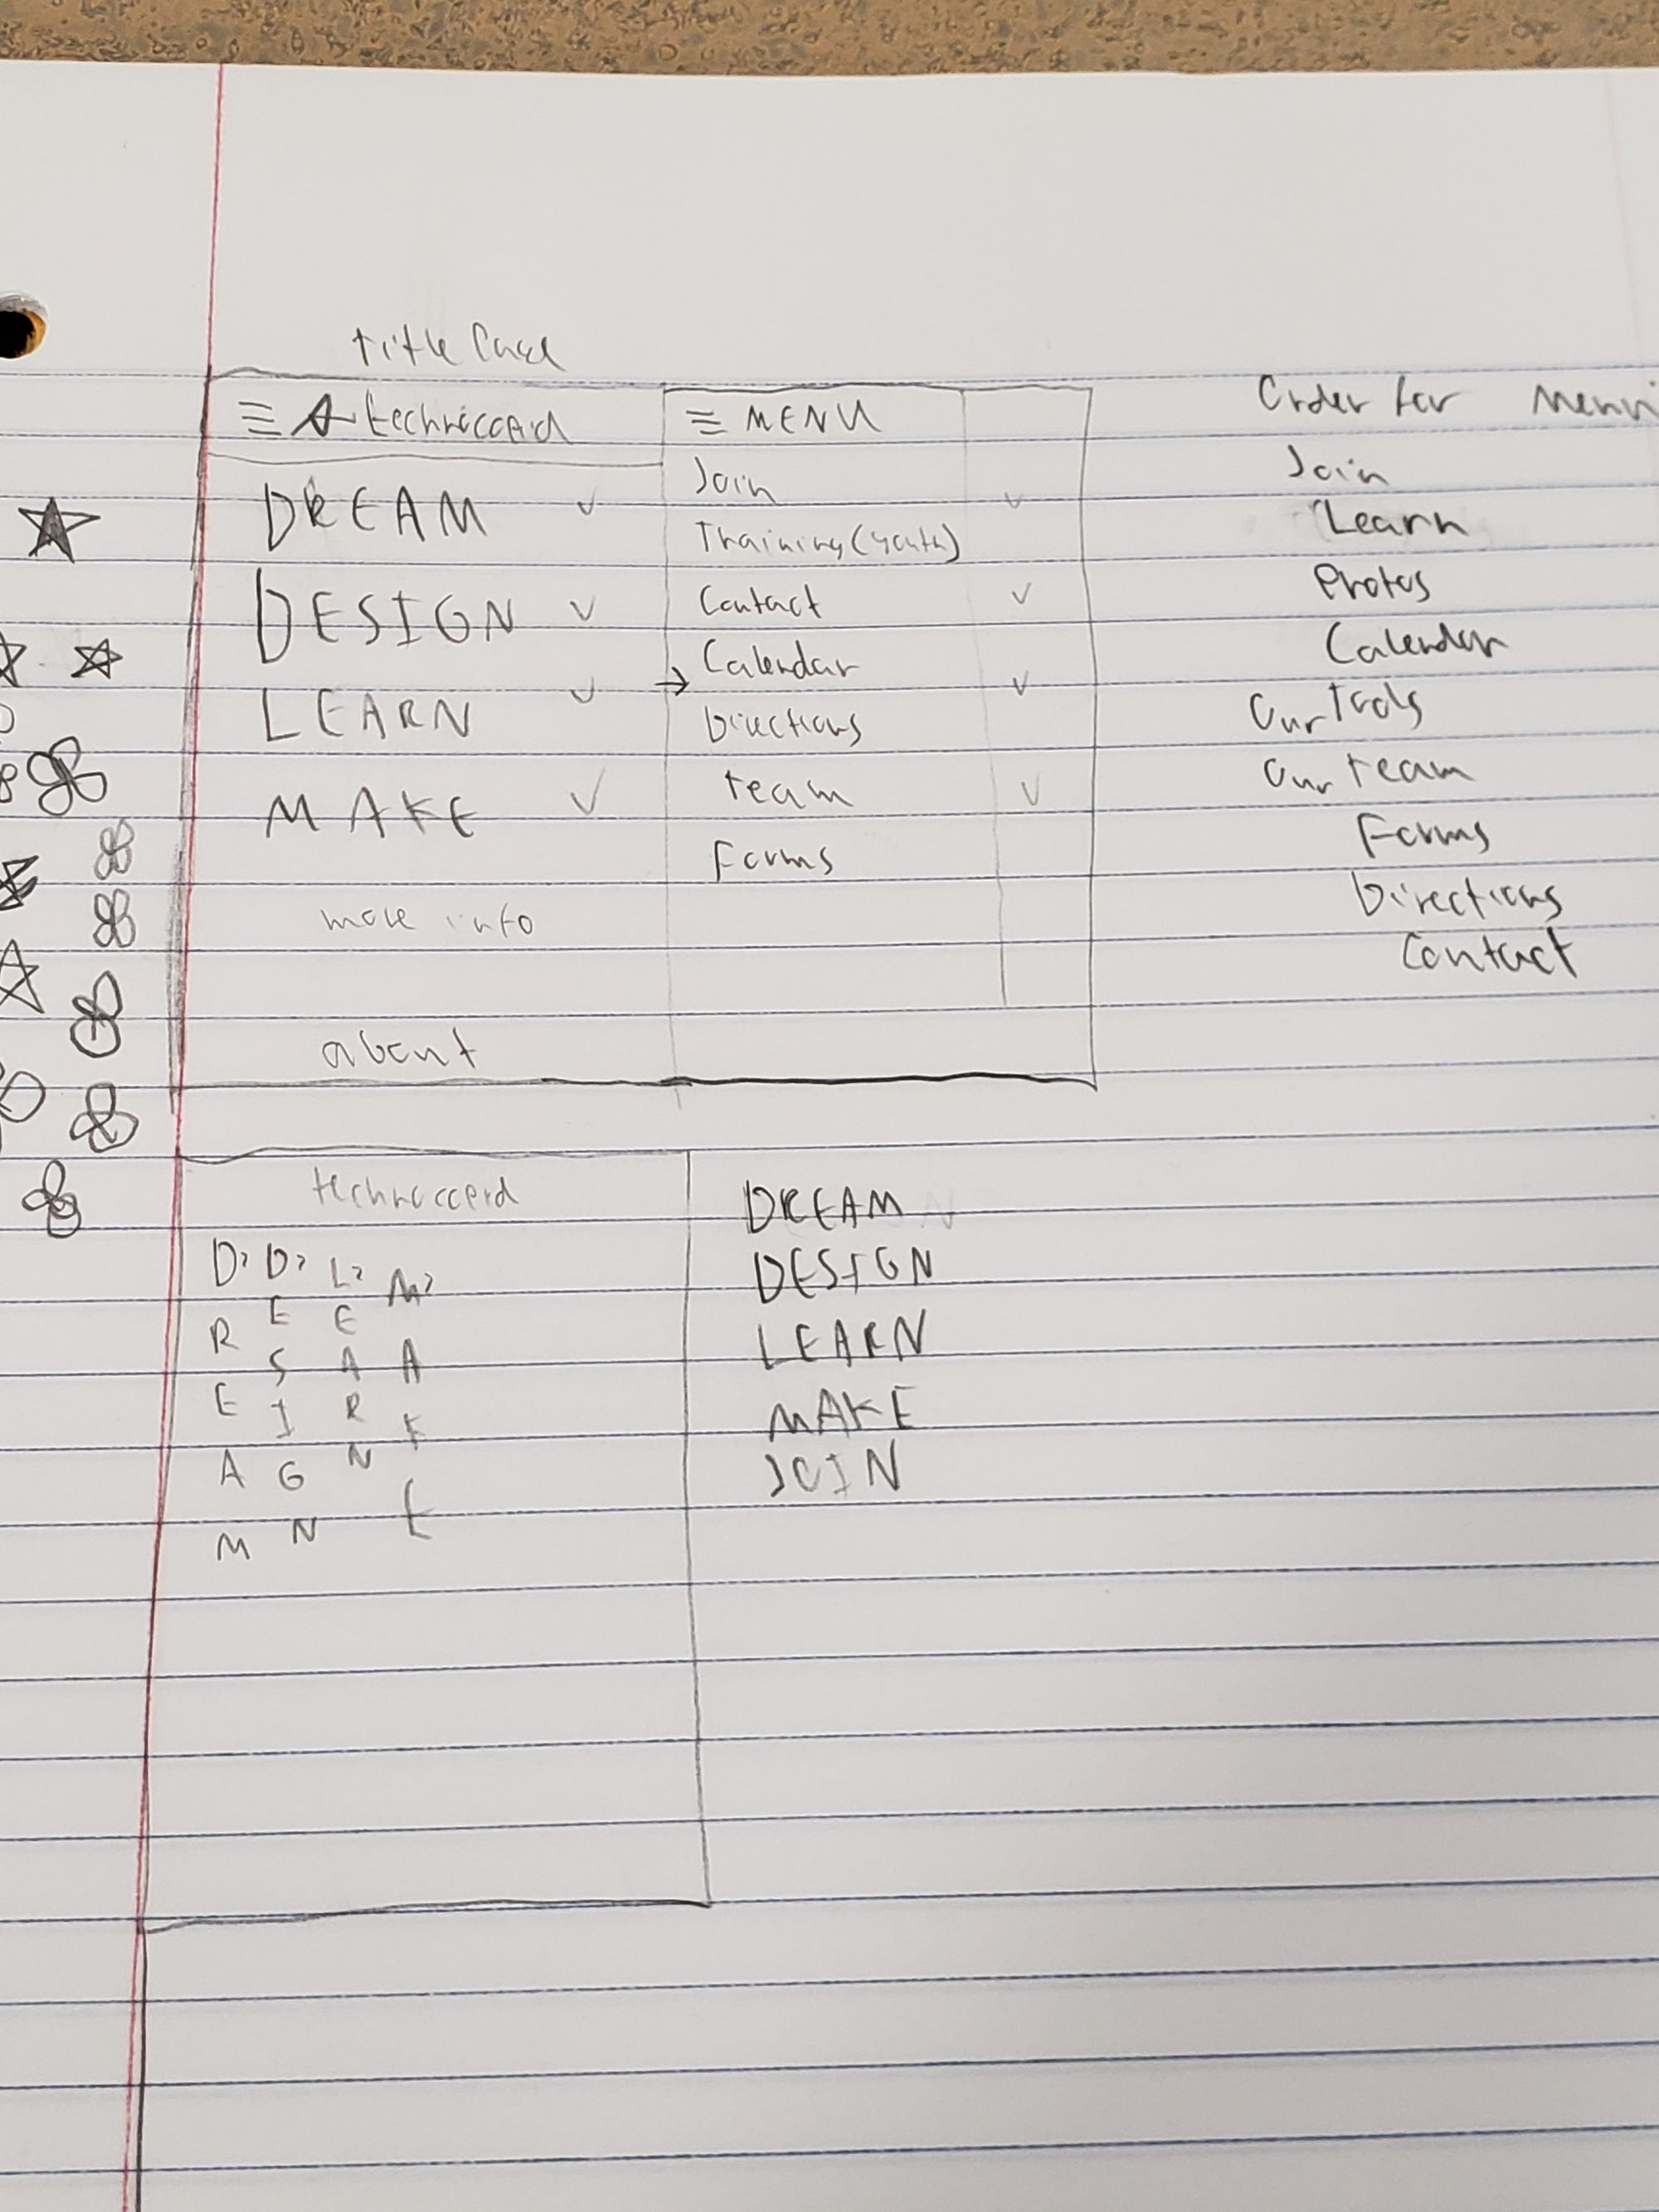 Title Case
☰ technocopia
DREAM ✓
DESIGN ✓
LEARN ✓
MAKE ✓
more info
about
☰ MENU
Join
Training (youth)
Contact
→ Calendar
Directions
team
Forms
Order for Menu
Join
Learn
Photos
Calender
Our Tools
Our team
Forms
Directions
Contact
D> D> L> M>
R E E A
E S A K
A I R E
M G N
N
DREAM
DESIGN
LEARN
MAKE
JOIN